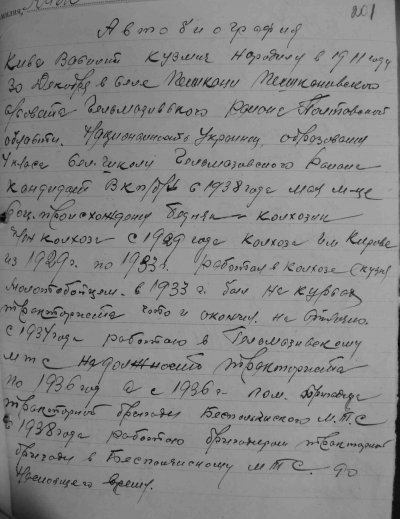 801
Автобиография
Кива Василий Кузмич народился в 1911 году
30 Декабря в селе Пешкани Пешкановского
совета Гельмазивського Района Полтавской
области. Национальность Украинец, образование
4 класа Сел. школи Гельмазовского Района
кандидат ВКП/б/ с 1938 года мая м-це
Соц. происхождения бедняк - колхозник
Член колхоза с 1929 года колхоза им Кирова
из 1929 г. по 1933 г. работал в колхозе (кузня
молотобойцем. в 1933 г. был на курсах
трактористов что и окончил на Отлично.
с 1934 года работаю в Гельмазивскому
МТС на должности тракториста
по 1936 год а с 1936 г. пом. бригадира
тракторной бригады Беспалчиского М.Т.С
с 1938 года работаю бригадиром тракторной
бригады в Беспалчискому М.Т.С. до
настоящего время.